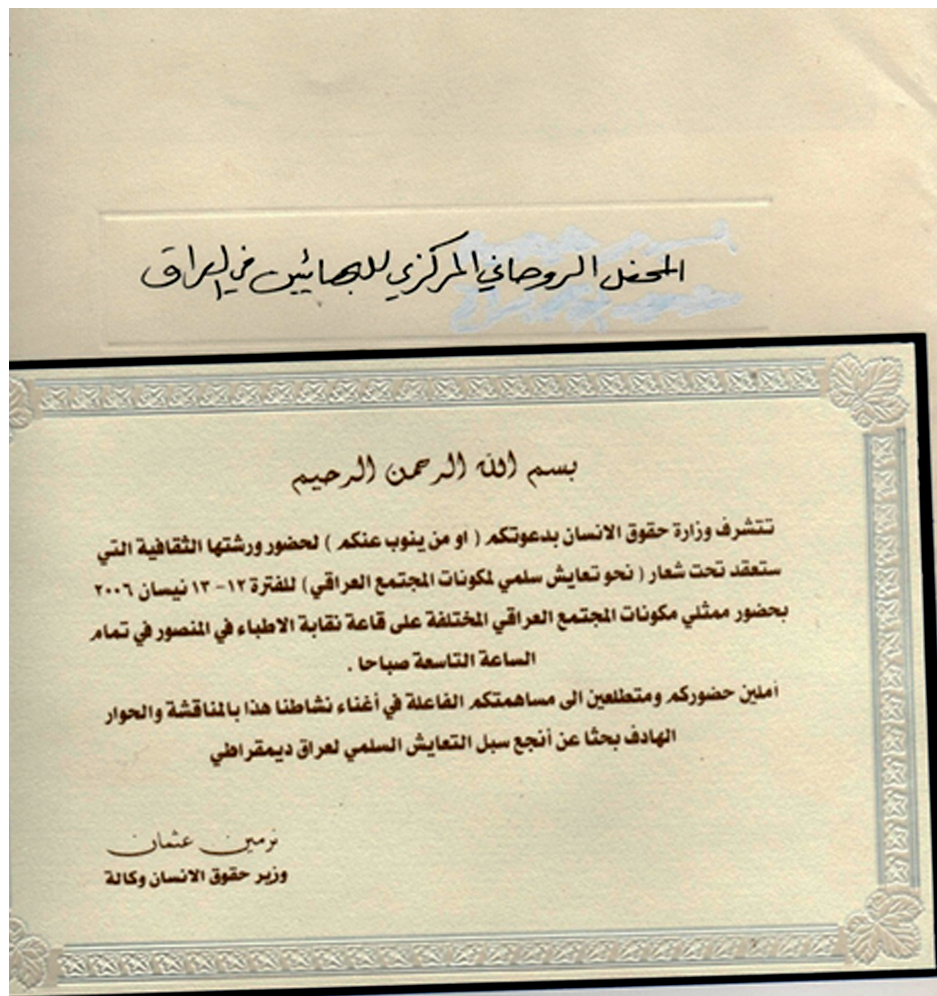 المحفل الروحاني المركزي للبهائيين في العراق
بسم الله الرحمن الرحيم
تتشرف وزارة حقوق الانسان بدعوتكم ( او من ينوب عنكم ) لحضور ورشتها الثقافية التي
ستعقد تحت شعار ( نحو تعايش سلمي لمكونات المجتمع العراقي ) للفترة ١٢- ١٣ نيسان ٢٠٠٦
بحضور ممثلي مكونات المجتمع العراقي المختلفة على قاعة نقابة الاطباء في المنصور في تمام
الساعة التاسعة صباحا .
أملين حضوركم ومتطلعين الى مساهمتكم الفاعلة في أغناء نشاطنا هذا بالمناقشة والحوار
الهادف بحثا عن أنجع سبل التعايش السلمي لعراق ديمقراطي
نرمين عثمان
وزير حقوق الانسان وكالة